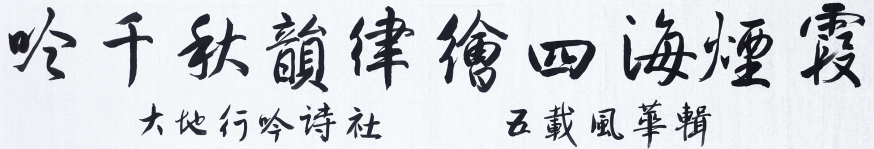 吟千秋韻律繪四海煙霞
大地行吟诗社 五載風華輯